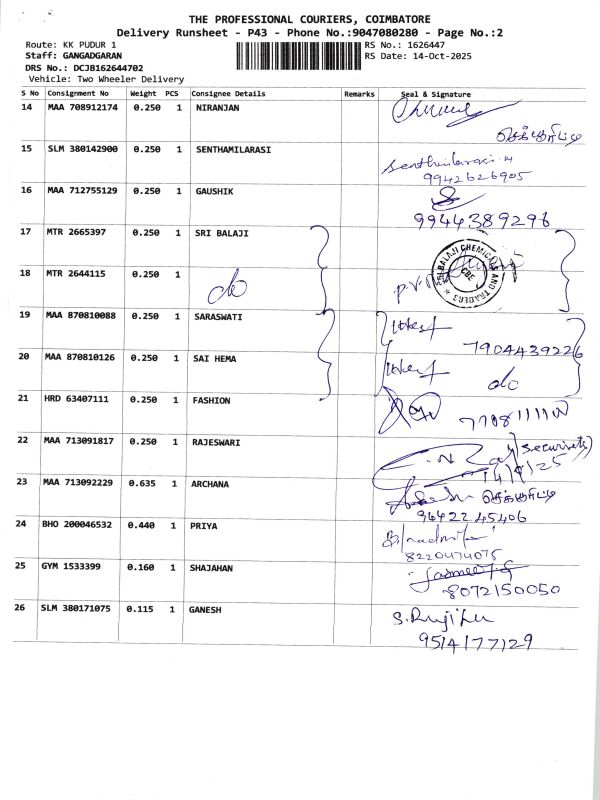 THE PROFESSIONAL COURIERS, COIMBATORE
Delivery Runsheet - P43 - Phone No.:9047080280 - Page No.:2
Route: KK PUDUR 1
Staff: GANGADGARAN
DRS No.: DCJB162644702
Vehicle: Two Wheeler Delivery
RS No.: 1626447
RS Date: 14-Oct-2025
S No Consignment No Weight PCS Consignee Details Remarks Seal & Signature
14 MAA 708912174 0.250 1 NIRANJAN
செக்யூரிட்டி
15 SLM 380142900 0.250 1 SENTHAMILARASI Senthilarasi
9942626905
16 MAA 712755129 0.250 1 GAUSHIK
9944389296
17 MTR 2665397 0.250 1 SRI BALAJI
SRI BALAJI CHEMICALS AND TRADERS
CBE
18 MTR 2644115 0.250 1 do
19 MAA 870810088 0.250 1 SARASWATI
7904439226
20 MAA 870810126 0.250 1 SAI HEMA do
21 HRD 63407111 0.250 1 FASHION
22 MAA 713091817 0.250 1 RAJESWARI (Security)
23 MAA 713092229 0.635 1 ARCHANA செக்யூரிட்டி
9442245406
24 BHO 200046532 0.440 1 PRIYA
8220474075
25 GYM 1533399 0.160 1 SHAJAHAN
8072150050
26 SLM 380171075 0.115 1 GANESH
9514177129